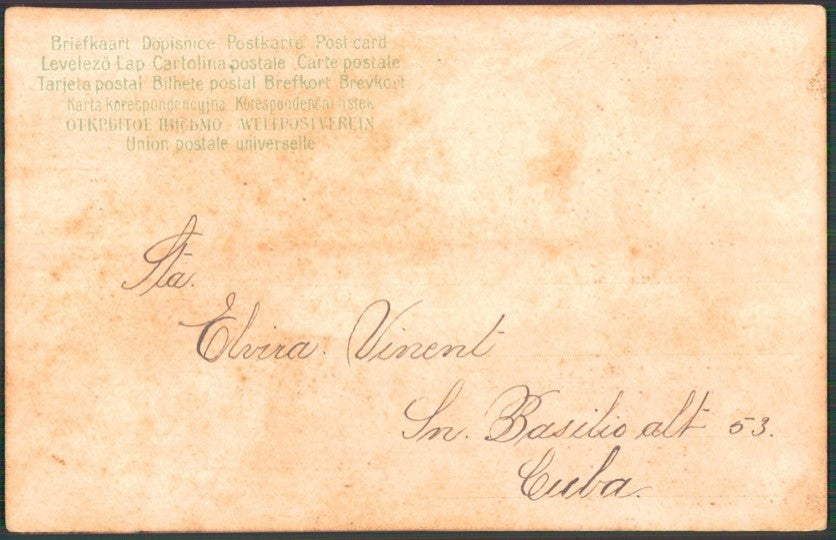 Briefkaart Dopisnice Postkarte Post card
Levelező Lap Cartolina postale Carte postale
Tarjeta postal Bilhete postal Brefkort Brevkort
Karta korespondencyjna Korespondenční lístek
ОТКРЫТОЕ ПИСЬМО WELTPOSTVEREIN
Union postale universelle
Sta.
Elvira. Vinent
Sn. Basilio alt 53.
Cuba.